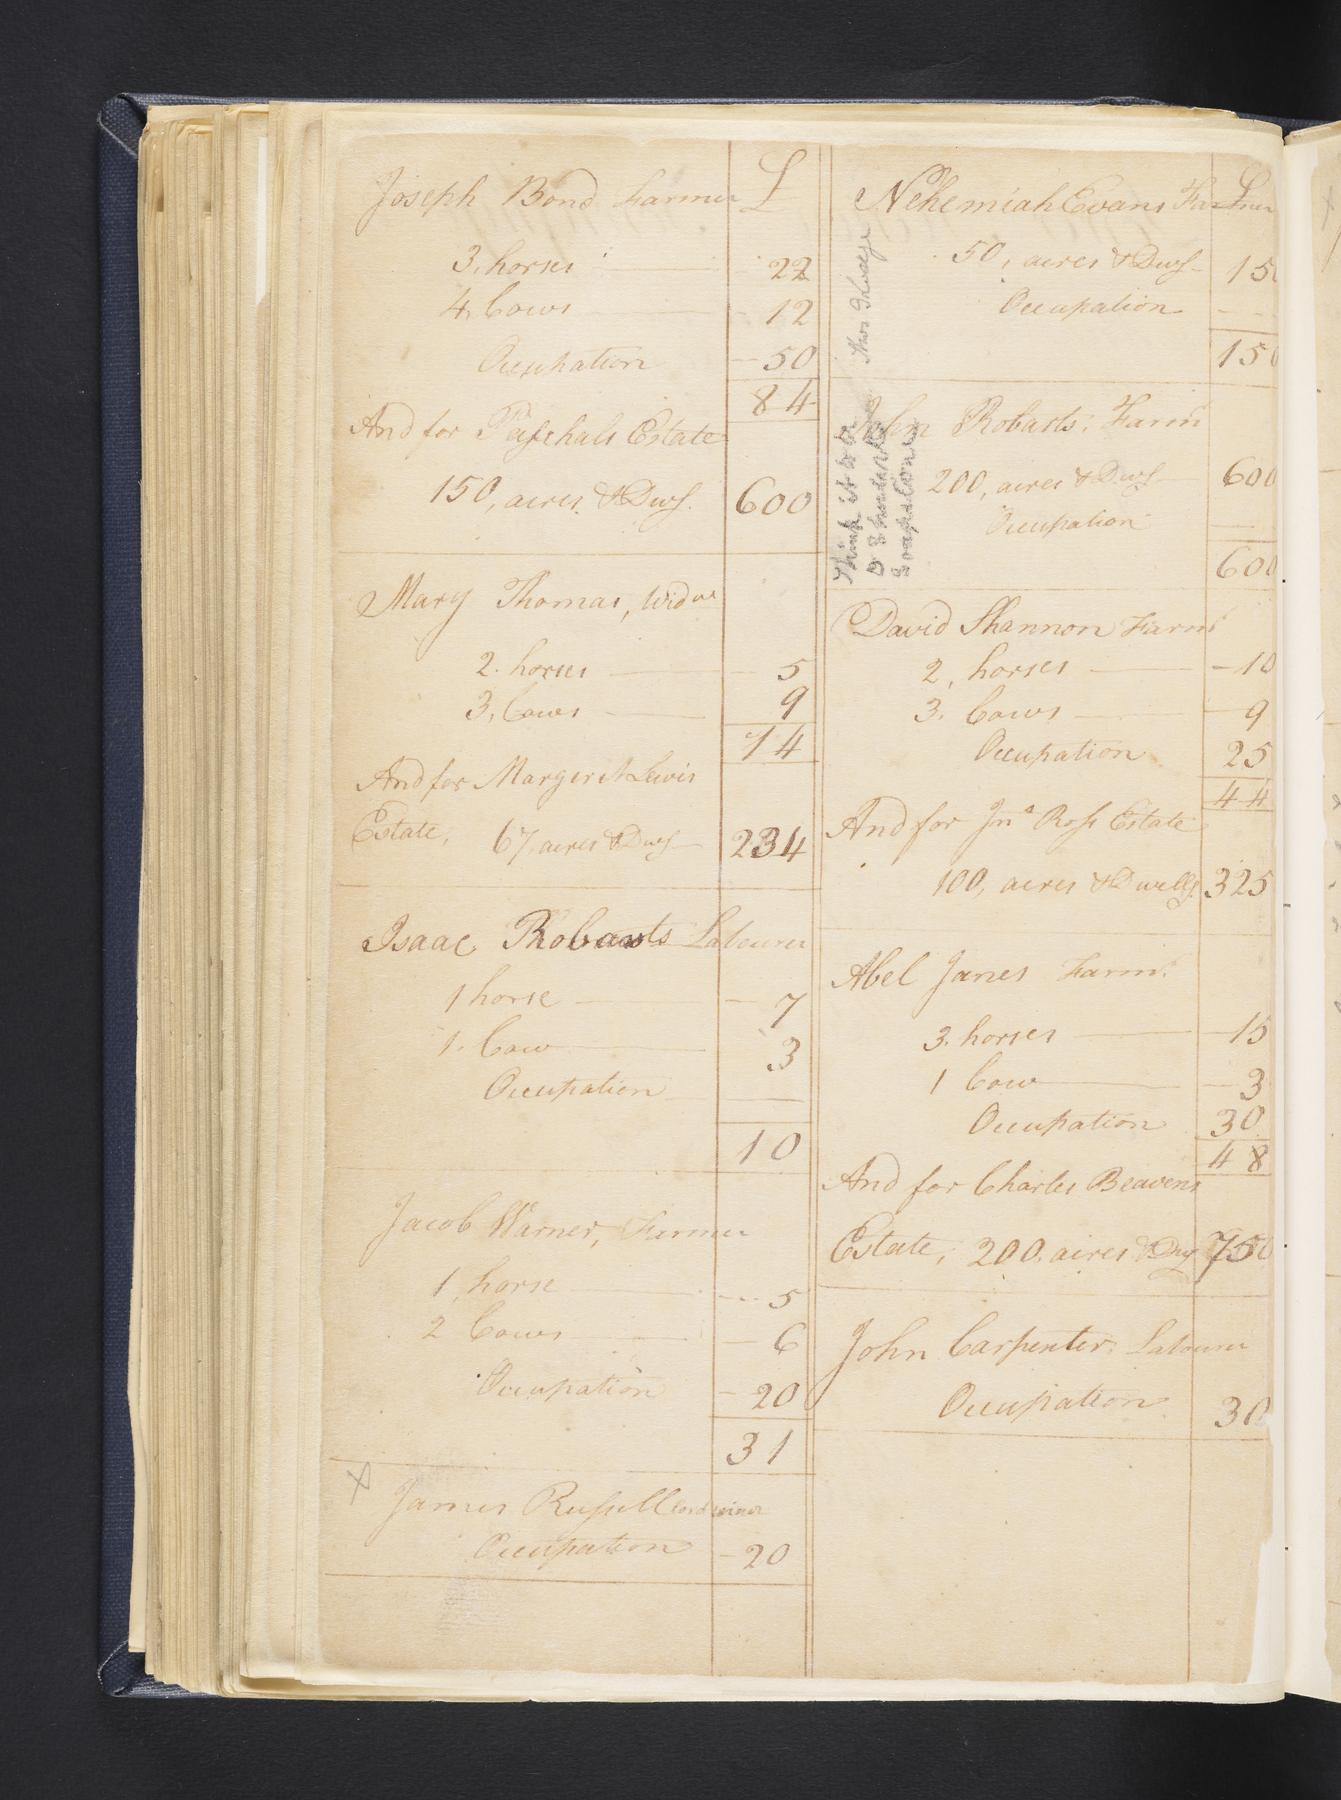 Joseph Bond Farmer £
3, horses 22
4, Cows 12
Occupation 50
84
And for Paschals Estate
150, acres & Dwg. 600
Mary Thomas, Widw
2. horses 5
3, Cows 9
14
And for Margeret Lewis
Estate, 67, acres & Dwg 234
Isaac Robarts Labourer
1 horse 7
1. Cow 3
Occupation
10
Jacob Warner, Farmer
1, horse 5
2 Cows 6
Occupation 20
31
X James Russell Cordwiner
Occupation 20
Nehemiah Evans Farmer £
50, acres & Dwg 150
Occupation
150
John Robarts, Farmr
200, acres & Dwg 600
Occupation
600
Think it to be
David Shannon Farmr
2, horses 10
3. Cows 9
Occupation 25
44
And for Jno Ross Estate
100, acres & Dwellg 325
Abel Janes Farmr
3. horses 15
1 Cow 3
Occupation 30
48
And for Charles Beavens
Estate, 200, acres & Dwg 750
John Carpenter, Labourer
Occupation 30